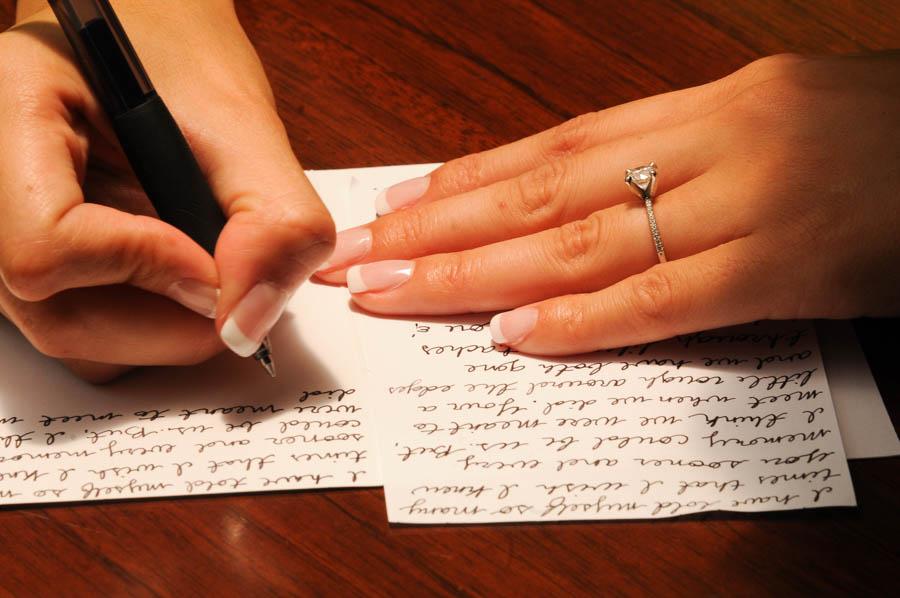 I have told myself so many
times that I wish I knew
you sooner and every
memory could be us. But,
I think we were meant to
meet when we did. Your a
little rough around the edges
and we have both gone
through
I have told myself so m
times that I wish I kn
sooner and every memor
could be us. But, I th
were meant to meet w
did